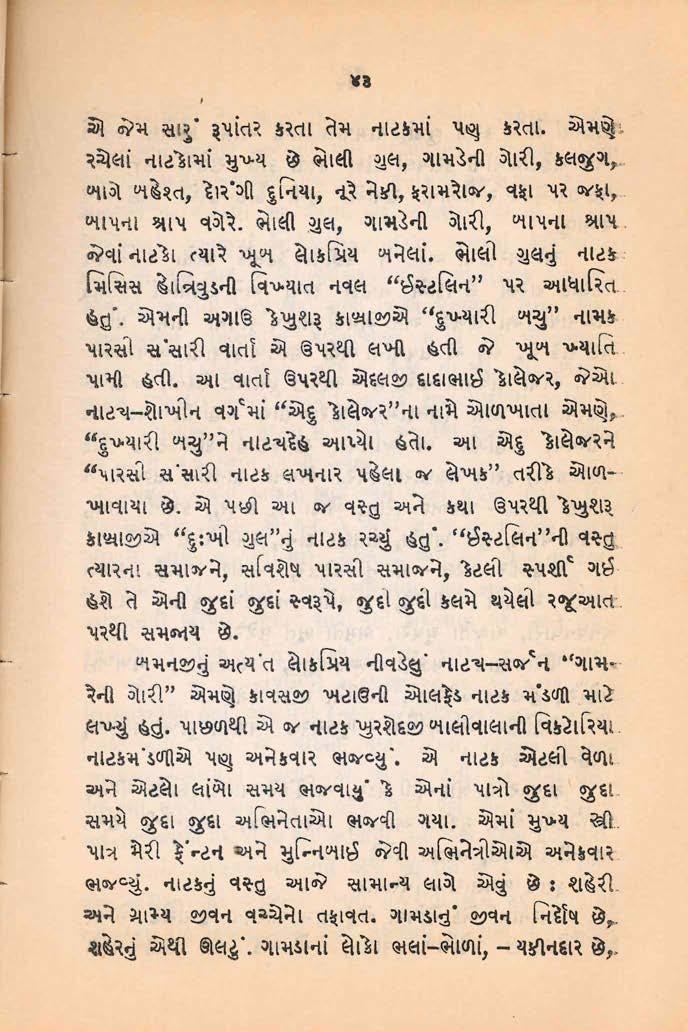 ૪૩
એ જેમ સારું રૂપાંતર કરતા તેમ નાટકમાં પણ કરતા. એમણે
રચેલાં નાટકોમાં મુખ્ય છે ભોલી ગુલ, ગામડેની ગોરી, કલજુગ,
બાગે બહેશ્ત, દોરંગી દુનિયા, નૂરે નેકી, ફરામરોજ, વફા પર જફા,
બાપના શ્રાપ વગેરે. ભોલી ગુલ, ગામડેની ગોરી, બાપના શ્રાપ
જેવાં નાટકો ત્યારે ખૂબ લોકપ્રિય બનેલાં. ભોલી ગુલનું નાટક
મિસિસ હોન્રિવુડની વિખ્યાત નવલ “ઈસ્ટલિન” પર આધારિત
હતું. એમની અગાઉ કેખુશરૂ કાબ્રાજીએ “દુખ્યારી બચુ” નામક
પારસી સંસારી વાર્તા એ ઉપરથી લખી હતી જે ખૂબ ખ્યાતિ
પામી હતી. આ વાર્તા ઉપરથી એદલજી દાદાભાઈ કોલેજર, જેઓ
નાટય–શોખીન વર્ગમાં “એદુ કોલેજર”ના નામે ઓળખાતા એમણે,
“દુખ્યારી બચુ”ને નાટયદેહ આપ્યો હતો. આ એદુ કોલેજરને
“પારસી સંસારી નાટક લખનાર પહેલા જ લેખક” તરીકે ઓળ-
ખાવાયા છે. એ પછી આ જ વસ્તુ અને કથા ઉપરથી કેખુશરૂ
કાબ્રાજીએ “દુઃખી ગુલ”નું નાટક રચ્યું હતું. “ઈસ્ટલિન”ની વસ્તુ
ત્યારના સમાજને, સવિશેષ પારસી સમાજને, કેટલી સ્પર્શી ગઈ
હશે તે એની જુદાં જુદાં સ્વરૂપે, જુદી જુદી કલમે થયેલી રજૂઆત
પરથી સમજાય છે.
બમનજીનું અત્યંત લોકપ્રિય નીવડેલું નાટય–સર્જન “ગામ-
રેની ગોરી” એમણે કાવસજી ખટાઉની આલફ્રેડ નાટક મંડળી માટે
લખ્યું હતું. પાછળથી એ જ નાટક ખુરશેદજી બાલીવાલાની વિકટોરિયા
નાટકમંડળીએ પણ અનેકવાર ભજવ્યું. એ નાટક એટલી વેળા
અને એટલો લાંબો સમય ભજવાયું કે એનાં પાત્રો જુદા જુદા
સમયે જુદા જુદા અભિનેતાઓ ભજવી ગયા. એમાં મુખ્ય સ્ત્રી
પાત્ર મેરી ફેન્ટન અને મુન્નિબાઈ જેવી અભિનેત્રીઓએ અનેકવાર
ભજવ્યું. નાટકનું વસ્તુ આજે સામાન્ય લાગે એવું છે : શહેરી
અને ગ્રામ્ય જીવન વચ્ચેનો તફાવત. ગામડાનું જીવન નિર્દોષ છે,
શહેરનું એથી ઊલટું. ગામડાનાં લોકો ભલાં–ભોળાં, – યકીનદાર છે,